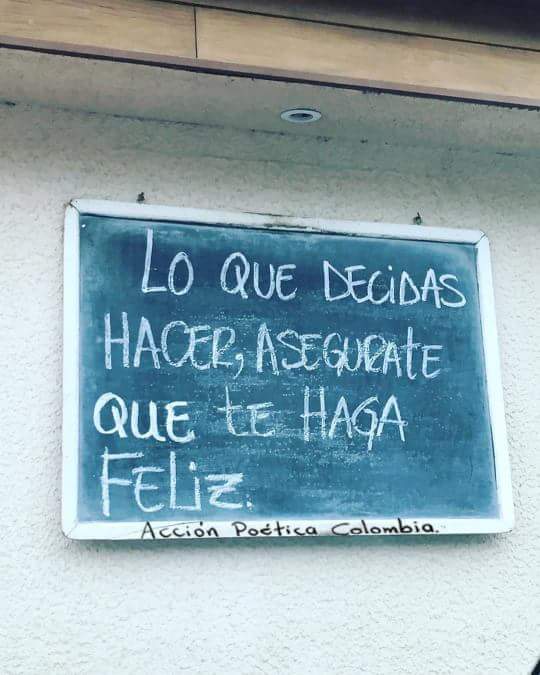 LO QUE DECIDAS
HACER, ASEGURATE
QUE tE HAGA
FELIZ.
Acción Poética Colombia.